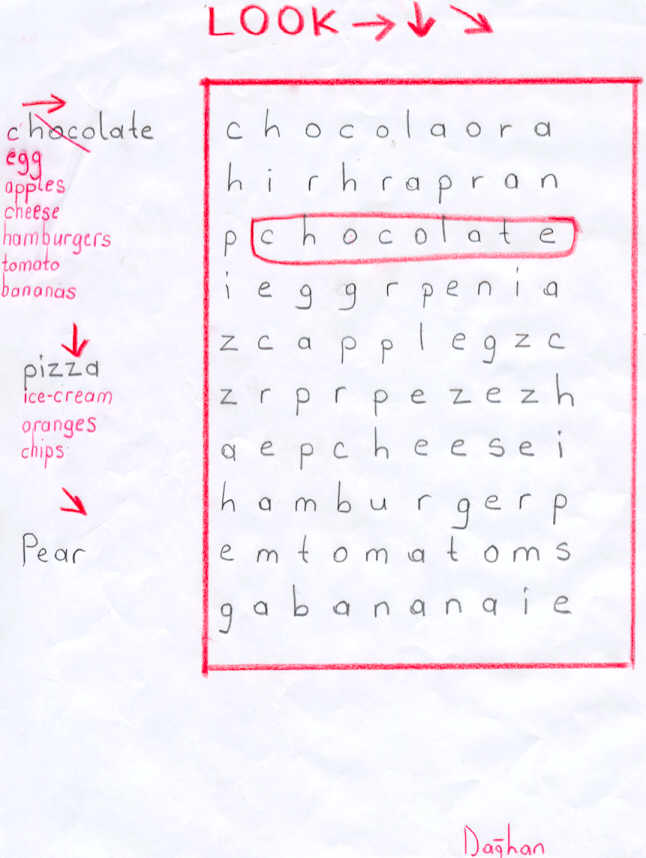 LOOK → ↓ ↘
→
chocolate
egg
apples
cheese
hamburgers
tomato
bananas
↓
pizza
ice-cream
oranges
chips
↘
Pear
c h o c o l a o r a
h i r h r a p r a n
p c h o c o l a t e
i e g g r p e n i a
z c a p p l e g z c
z r p r p e z e z h
a e p c h e e s e i
h a m b u r g e r p
e m t o m a t o m s
g a b a n a n a i e
Dağhan